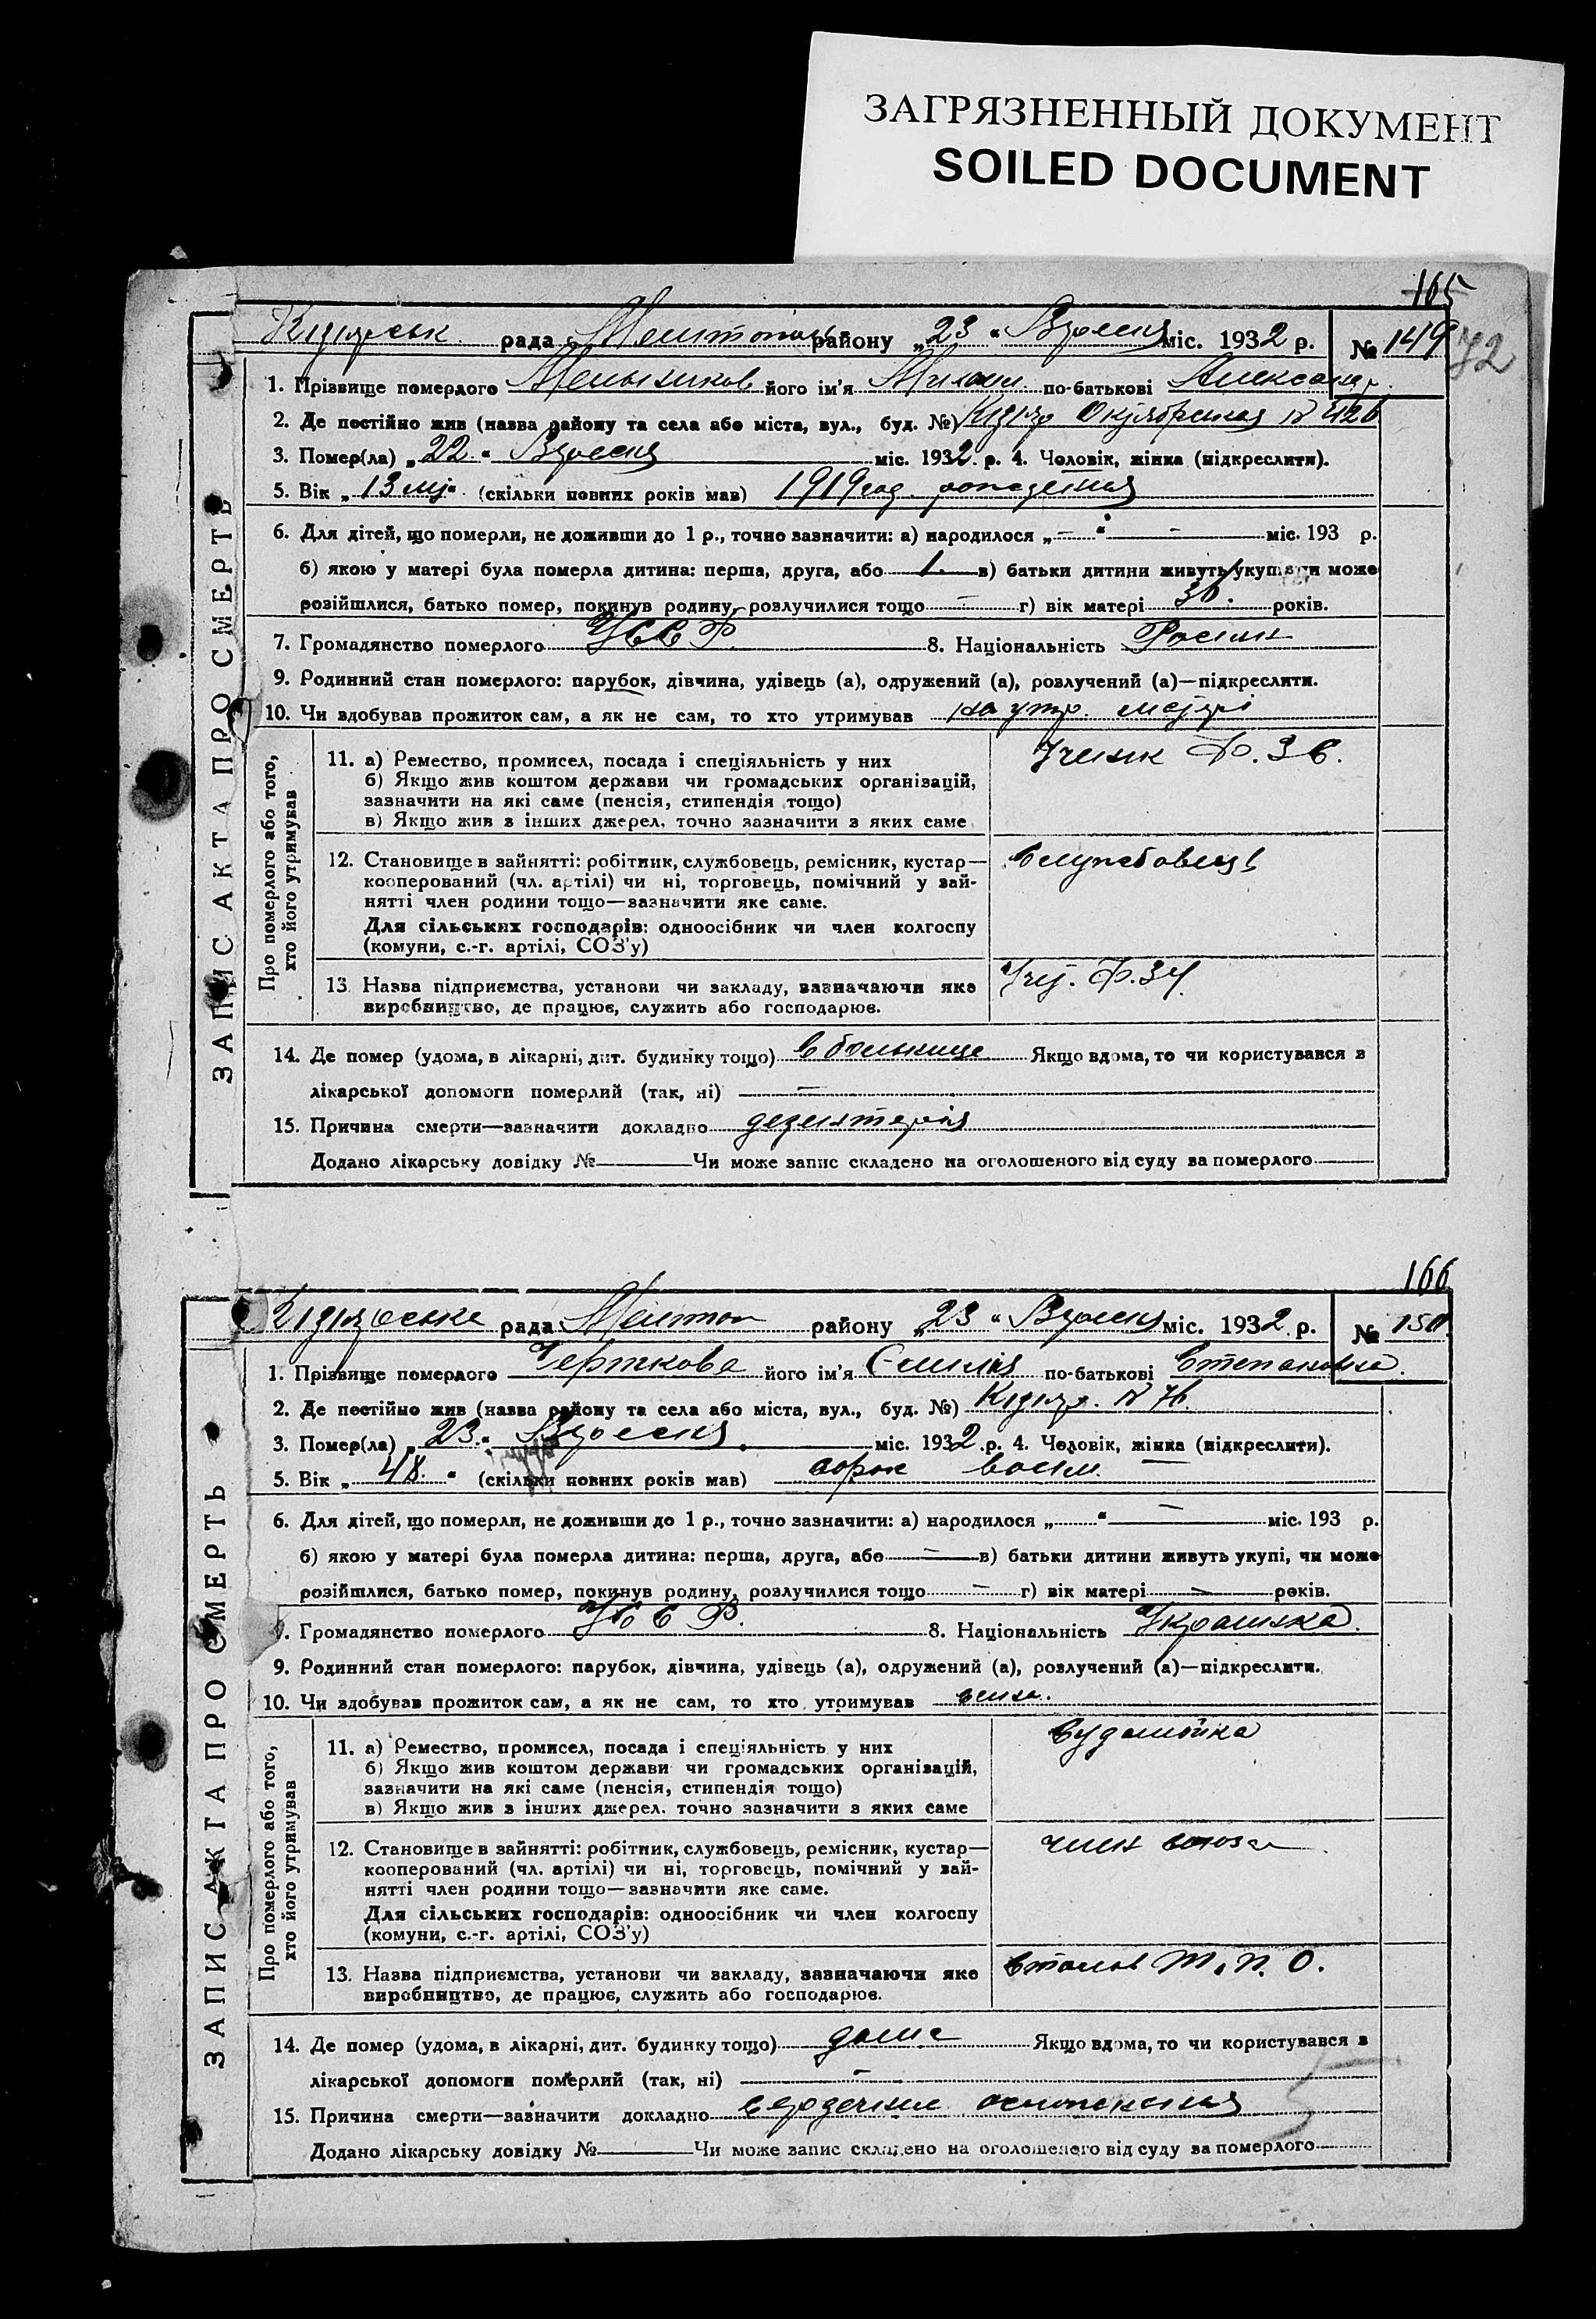 ЗАГРЯЗНЕННЫЙ ДОКУМЕНТ
SOILED DOCUMENT
165
рада районую „23“ Вересня міс. 1932 р. № 149
72
1. Прізвище померлого його ім'я по-батькові
2. Де постійно жив (назва району та села або міста, вул., буд. №)
3. Помер(ла) „22“ Вересня міс. 1932 р. 4. Чоловік, жінка (підкреслити).
5. Вік „13 „ (скільки повних років мав) 1919 год рождения
6. Для дітей, що померли, не доживши до 1 р., точно зазначити: а) народилося „—“ — міс. 193 р.
б) якою у матері була померла дитина: перша, друга, або 1. в) батьки дитини живуть укупі, чи може
розійшлися, батько помер, покинув родину, розлучилися тощо — г) вік матері 36. років.
7. Громадянство померлого УССР. 8. Національність
9. Родинний стан померлого: парубок, дівчина, удівець (а), одружений (а), розлучений (а)—підкреслити.
10. Чи здобував прожиток сам, а як не сам, то хто утримував на утр. матері
ЗАПИС АКТА ПРО СМЕРТЬ
Про померлого або того,
хто його утримував
11. а) Ремество, промисел, посада і спеціяльність у них
б) Якщо жив коштом держави чи громадських організацій,
зазначити на які саме (пенсія, стипендія тощо)
в) Якщо жив з інших джерел, точно зазначити з яких саме
Ученик
12. Становище в зайнятті: робітник, службовець, ремісник, кустар—
кооперований (чл. артілі) чи ні, торговець, помічний у зай-
нятті член родини тощо—зазначити яке саме.
Для сільських господарів: одноосібник чи член колгоспу
(комуни, с.-г. артілі, СОЗ'у)
Службовець
13. Назва підприємства, установи чи закладу, зазначаючи яке
виробництво, де працює, служить або господарює.
14. Де помер (удома, в лікарні, дит. будинку тощо) в больнице Якщо вдома, то чи користувався з
лікарської допомоги померлий (так, ні) —
15. Причина смерти—зазначити докладно дезентерія
Додано лікарську довідку № Чи може запис складено на оголошеного від суду за померлого
166
рада Мелитоп району „23“ Вересня міс. 1932 р. № 150
1. Прізвище померлого Черткова його ім'я Емилія по-батькові Степановна
2. Де постійно жив (назва району та села або міста, вул., буд. №)
3. Помер(ла) „23“ Вересня міс. 1932 р. 4. Чоловік, жінка (підкреслити).
5. Вік „48.“ (скільки повних років мав) сорок восим
6. Для дітей, що померли, не доживши до 1 р., точно зазначити: а) народилося „ “ — міс. 193 р.
б) якою у матері була померла дитина: перша, друга, або — в) батьки дитини живуть укупі, чи може
розійшлися, батько помер, покинув родину, розлучилися тощо — г) вік матері — років.
7. Громадянство померлого УССР. 8. Національність Украинка
9. Родинний стан померлого: парубок, дівчина, удівець (а), одружений (а), розлучений (а)—підкреслити.
10. Чи здобував прожиток сам, а як не сам, то хто утримував сама.
ЗАПИС АКТА ПРО СМЕРТЬ
Про померлого або того,
хто його утримував
11. а) Ремество, промисел, посада і спеціяльність у них
б) Якщо жив коштом держави чи громадських організацій,
зазначити на які саме (пенсія, стипендія тощо)
в) Якщо жив з інших джерел, точно зазначити з яких саме
Судомойка
12. Становище в зайнятті: робітник, службовець, ремісник, кустар—
кооперований (чл. артілі) чи ні, торговець, помічний у зай-
нятті член родини тощо—зазначити яке саме.
Для сільських господарів: одноосібник чи член колгоспу
(комуни, с.-г. артілі, СОЗ'у)
член союза
13. Назва підприємства, установи чи закладу, зазначаючи яке
виробництво, де працює, служить або господарює.
Столов Т. П. О.
14. Де помер (удома, в лікарні, дит. будинку тощо) дома Якщо вдома, то чи користувався з
лікарської допомоги померлий (так, ні) —
15. Причина смерти—зазначити докладно
Додано лікарську довідку № Чи може запис складено на оголошеного від суду за померлого